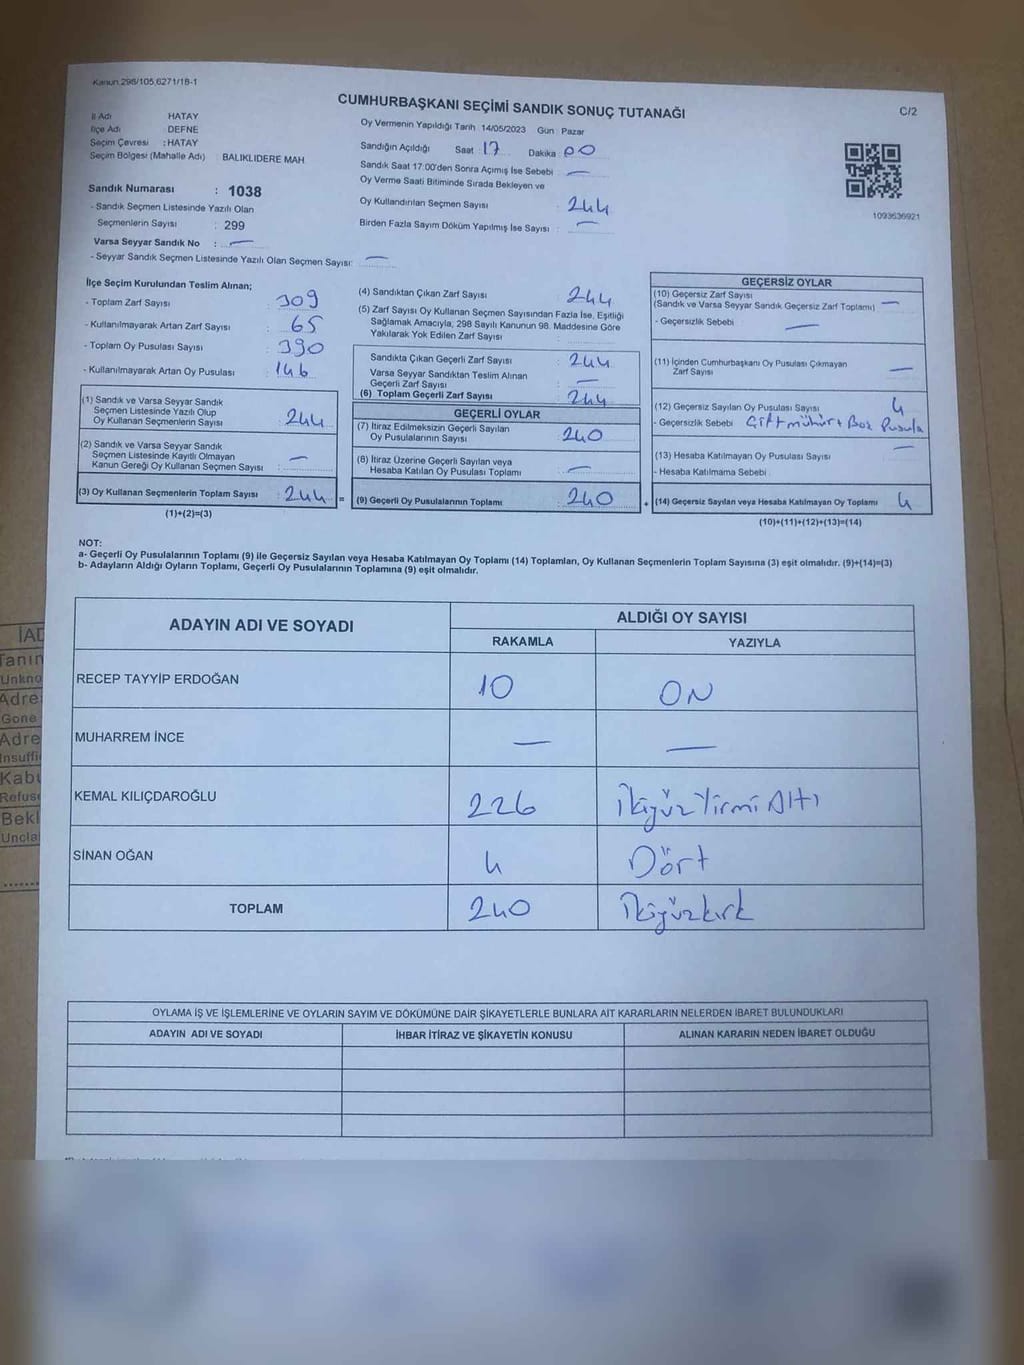 Kanun 298/105,6271/18-1
CUMHURBAŞKANI SEÇİMİ SANDIK SONUÇ TUTANAĞI
C/2
İl Adı HATAY
İlçe Adı : DEFNE
Seçim Çevresi : HATAY
Seçim Bölgesi (Mahalle Adı) : BALIKLIDERE MAH
Sandık Numarası : 1038
- Sandık Seçmen Listesinde Yazılı Olan
Seçmenlerin Sayısı : 299
Varsa Seyyar Sandık No : —
- Seyyar Sandık Seçmen Listesinde Yazılı Olan Seçmen Sayısı: —
Oy Vermenin Yapıldığı Tarih 14/05/2023 Gün Pazar
Sandığın Açıldığı Saat 17 Dakika 00
Sandık Saat 17:00'den Sonra Açımış İse Sebebi —
Oy Verme Saati Bitiminde Sırada Bekleyen ve
Oy Kullandırılan Seçmen Sayısı : 244
Birden Fazla Sayım Döküm Yapılmış İse Sayısı : —
1093636921
İlçe Seçim Kurulundan Teslim Alınan;
- Toplam Zarf Sayısı : 309
- Kullanılmayarak Artan Zarf Sayısı : 65
- Toplam Oy Pusulası Sayısı : 390
- Kullanılmayarak Artan Oy Pusulası : 146
(1) Sandık ve Varsa Seyyar Sandık
Seçmen Listesinde Yazılı Olup
Oy Kullanan Seçmenlerin Sayısı : 244
(2) Sandık ve Varsa Seyyar Sandık
Seçmen Listesinde Kayıtlı Olmayan
Kanun Gereği Oy Kullanan Seçmen Sayısı : —
(3) Oy Kullanan Seçmenlerin Toplam Sayısı : 244 =
(1)+(2)=(3)
(4) Sandıktan Çıkan Zarf Sayısı : 244
(5) Zarf Sayısı Oy Kullanan Seçmen Sayısından Fazla İse, Eşitliği
Sağlamak Amacıyla, 298 Sayılı Kanunun 98. Maddesine Göre
Yakılarak Yok Edilen Zarf Sayısı :
Sandıkta Çıkan Geçerli Zarf Sayısı : 244
Varsa Seyyar Sandıktan Teslim Alınan
Geçerli Zarf Sayısı : —
(6) Toplam Geçerli Zarf Sayısı : 244
GEÇERLİ OYLAR
(7) İtiraz Edilmeksizin Geçerli Sayılan
Oy Pusulalarının Sayısı : 240
(8) İtiraz Üzerine Geçerli Sayılan veya
Hesaba Katılan Oy Pusulası Toplamı : —
(9) Geçerli Oy Pusulalarının Toplamı : 240 +
GEÇERSİZ OYLAR
(10) Geçersiz Zarf Sayısı
(Sandık ve Varsa Seyyar Sandık Geçersiz Zarf Toplamı) —
- Geçersizlik Sebebi —
(11) İçinden Cumhurbaşkanı Oy Pusulası Çıkmayan
Zarf Sayısı —
(12) Geçersiz Sayılan Oy Pusulası Sayısı 4
- Geçersizlik Sebebi Çift mühür + Boş Pusula
(13) Hesaba Katılmayan Oy Pusulası Sayısı —
- Hesaba Katılmama Sebebi
(14) Geçersiz Sayılan veya Hesaba Katılmayan Oy Toplamı 4
(10)+(11)+(12)+(13)=(14)
NOT:
a- Geçerli Oy Pusulalarının Toplamı (9) ile Geçersiz Sayılan veya Hesaba Katılmayan Oy Toplamı (14) Toplamları, Oy Kullanan Seçmenlerin Toplam Sayısına (3) eşit olmalıdır. (9)+(14)=(3)
b- Adayların Aldığı Oyların Toplamı, Geçerli Oy Pusulalarının Toplamına (9) eşit olmalıdır.
ADAYIN ADI VE SOYADI ALDIĞI OY SAYISI
RAKAMLA YAZIYLA
RECEP TAYYİP ERDOĞAN 10 ON
MUHARREM İNCE — —
KEMAL KILIÇDAROĞLU 226 İkiyüz Yirmi Altı
SİNAN OĞAN 4 Dört
TOPLAM 240 İkiyüzkırk
OYLAMA İŞ VE İŞLEMLERİNE VE OYLARIN SAYIM VE DÖKÜMÜNE DAİR ŞİKAYETLERLE BUNLARA AİT KARARLARIN NELERDEN İBARET BULUNDUKLARI
ADAYIN ADI VE SOYADI İHBAR İTİRAZ VE ŞİKAYETİN KONUSU ALINAN KARARIN NEDEN İBARET OLDUĞU
İAD
Tanın
Unkno
Adre
Gone
Adre
Insuffi
Kabu
Refuse
Bekl
Uncla